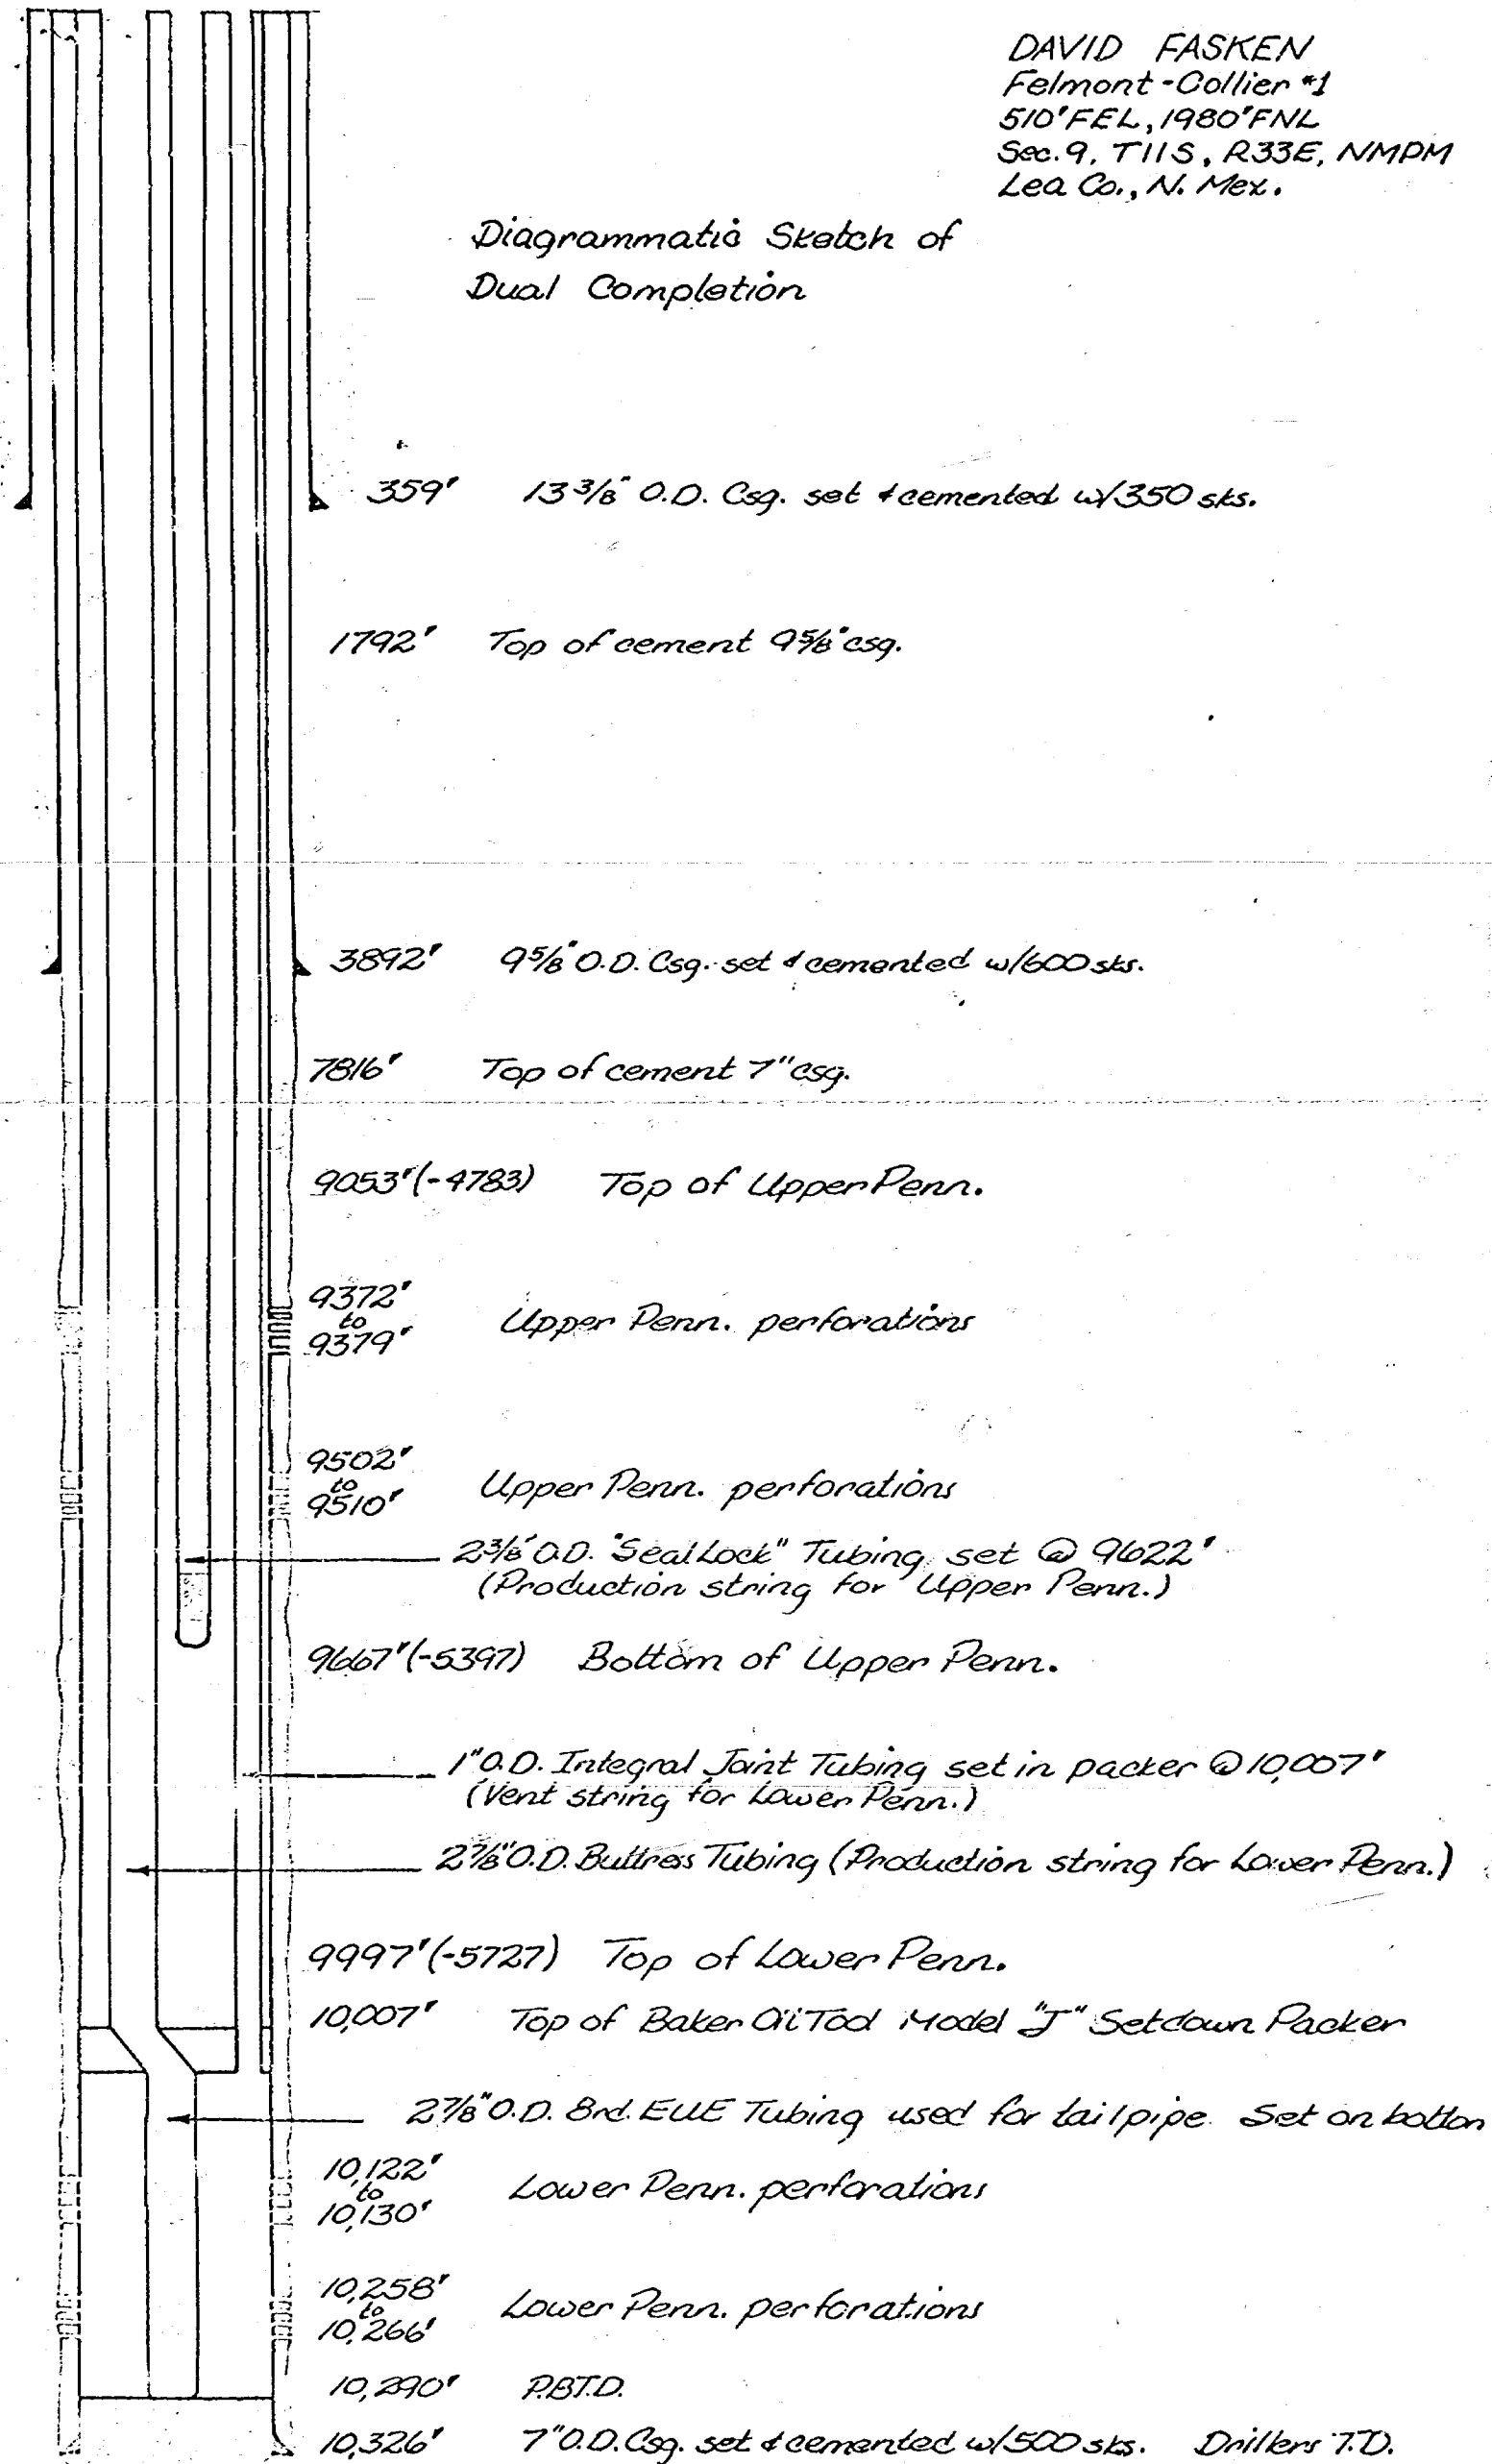 DAVID FASKEN
Felmont-Collier #1
510'FEL, 1980'FNL
Sec. 9, T11S, R33E, NMPM
Lea Co., N. Mex.
Diagrammatic Sketch of
Dual Completion
359' 13 3/8" O.D. Csg. set & cemented w/350 sks.
1792' Top of cement 9 5/8" csg.
3892' 9 5/8" O.D. Csg. set & cemented w/600 sks.
7816' Top of cement 7" csg.
9053' (-4783) Top of Upper Penn.
9372'
to
9379'
Upper Penn. perforations
9502'
to
9510'
Upper Penn. perforations
2 3/8" O.D. "Seal Lock" Tubing set @ 9622'
(Production string for Upper Penn.)
9667' (-5397) Bottom of Upper Penn.
1" O.D. Integral Joint Tubing set in packer @ 10,007'
(Vent string for Lower Penn.)
2 7/8" O.D. Buttress Tubing (Production string for Lower Penn.)
9997' (-5727) Top of Lower Penn.
10,007' Top of Baker Oil Tool Model "J" Setdown Packer
2 7/8" O.D. 8rd. EUE Tubing used for tailpipe. Set on bottom
10,122'
to
10,130'
Lower Penn. perforations
10,258'
to
10,266'
Lower Penn. perforations
10,290' P.B.T.D.
10,326' 7" O.D. Csg. set & cemented w/500 sks. Drillers T.D.